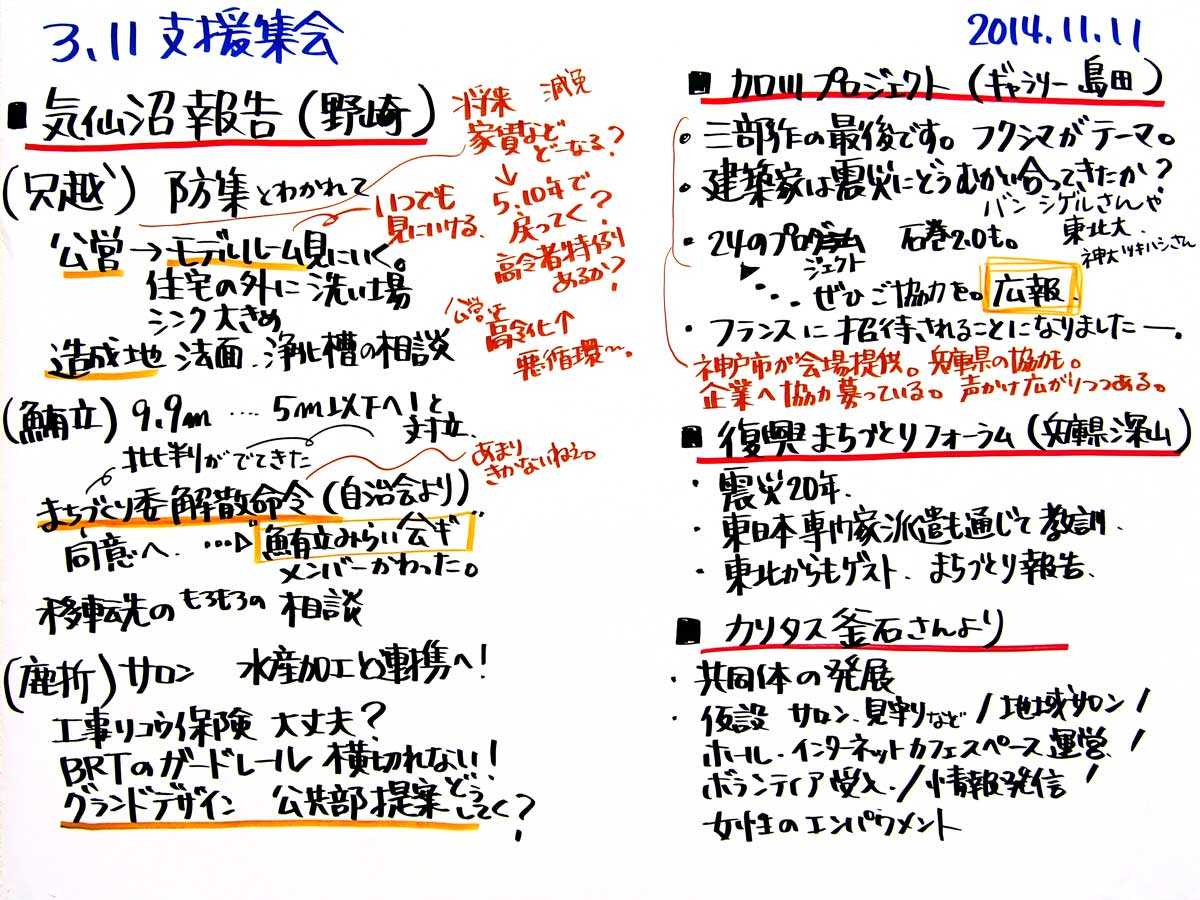 3.11 支援集会
2014.11.11
■ 気仙沼報告(野崎)
将来 減免
家賃など
どーなる?
↓
5.10年で
戻ってく?
高令者特例
あるか?
(只越) 防集とわかれて
いつでも
見にいける、
公営→モデルルーム見にいく。
住宅の外に洗い場
シンク大きめ
公営は
高令化↑
悪循環〜。
造成地 法面、浄化槽の相談
(鮪立) 9.9m …. 5m以下へ!と
対立、
批判がでてきた
あまり
きかないねぇ。
まちづくり委解散命令(自治会より)
同意へ、…▷ "鮪立みらい会ギ"
メンバーかわった。
移転先のもろもろの相談
(鹿折) サロン 水産加工と連携へ!
工事リコウ保険 大丈夫?
BRTのガードレール 横切れない!
グランドデザイン 公共部提案どう
してく?
■ 加川プロジェクト (ギャラリー島田)
・三部作の最後です。フクシマがテーマ。
・建築家は震災にどうむかい合ってきたか?
バン シゲルさんや
東北大
神大ツキハシさん
・24のプログラム 石巻2.0も。
ジェクト
▶ ・・・・ ぜひご協力を。広報、
・フランスに招待されることになりましたー。
神戸市が会場提供。兵庫県の協力も。
企業へ協力募っている。声かけ広がりつつある。
■ 復興まちづくりフォーラム(兵庫県深山)
・震災20年、
・東日本専門家派遣も通じて教訓、
・東北からもゲスト、まちづくり報告、
■ カリタス釜石さんより
・共同体の発展
・仮設 サロン、見守りなど/地域サロン/
ホール・インターネットカフェスペース運営/
ボランティア受入・/情報発信/
女性のエンパウメント